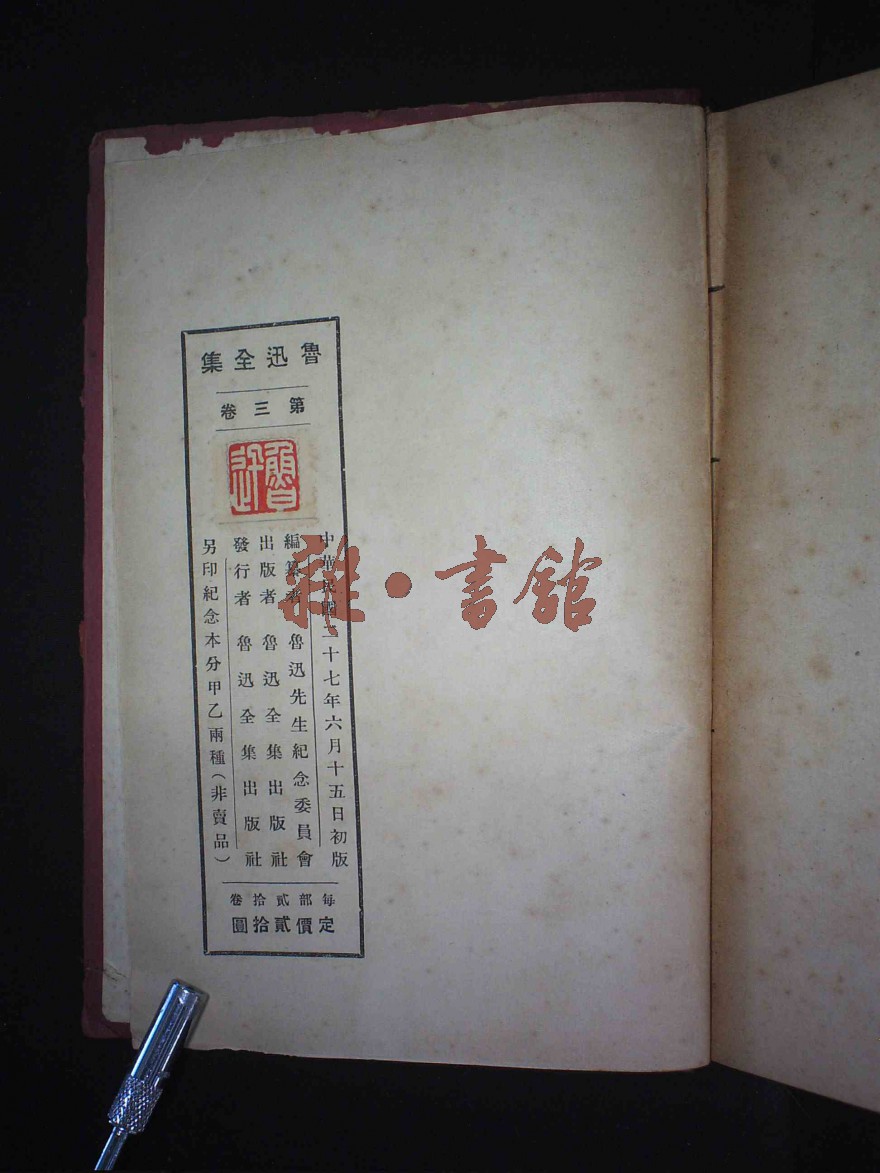 魯迅全集
第三卷
魯迅
中華民國二十七年六月十五日初版
編纂者 魯迅先生紀念委員會
出版者 魯迅全集出版社
發行者 魯迅全集出版社
另印紀念本分甲乙兩種(非賣品)
每部貳拾卷
定價貳拾圓
雜·書館